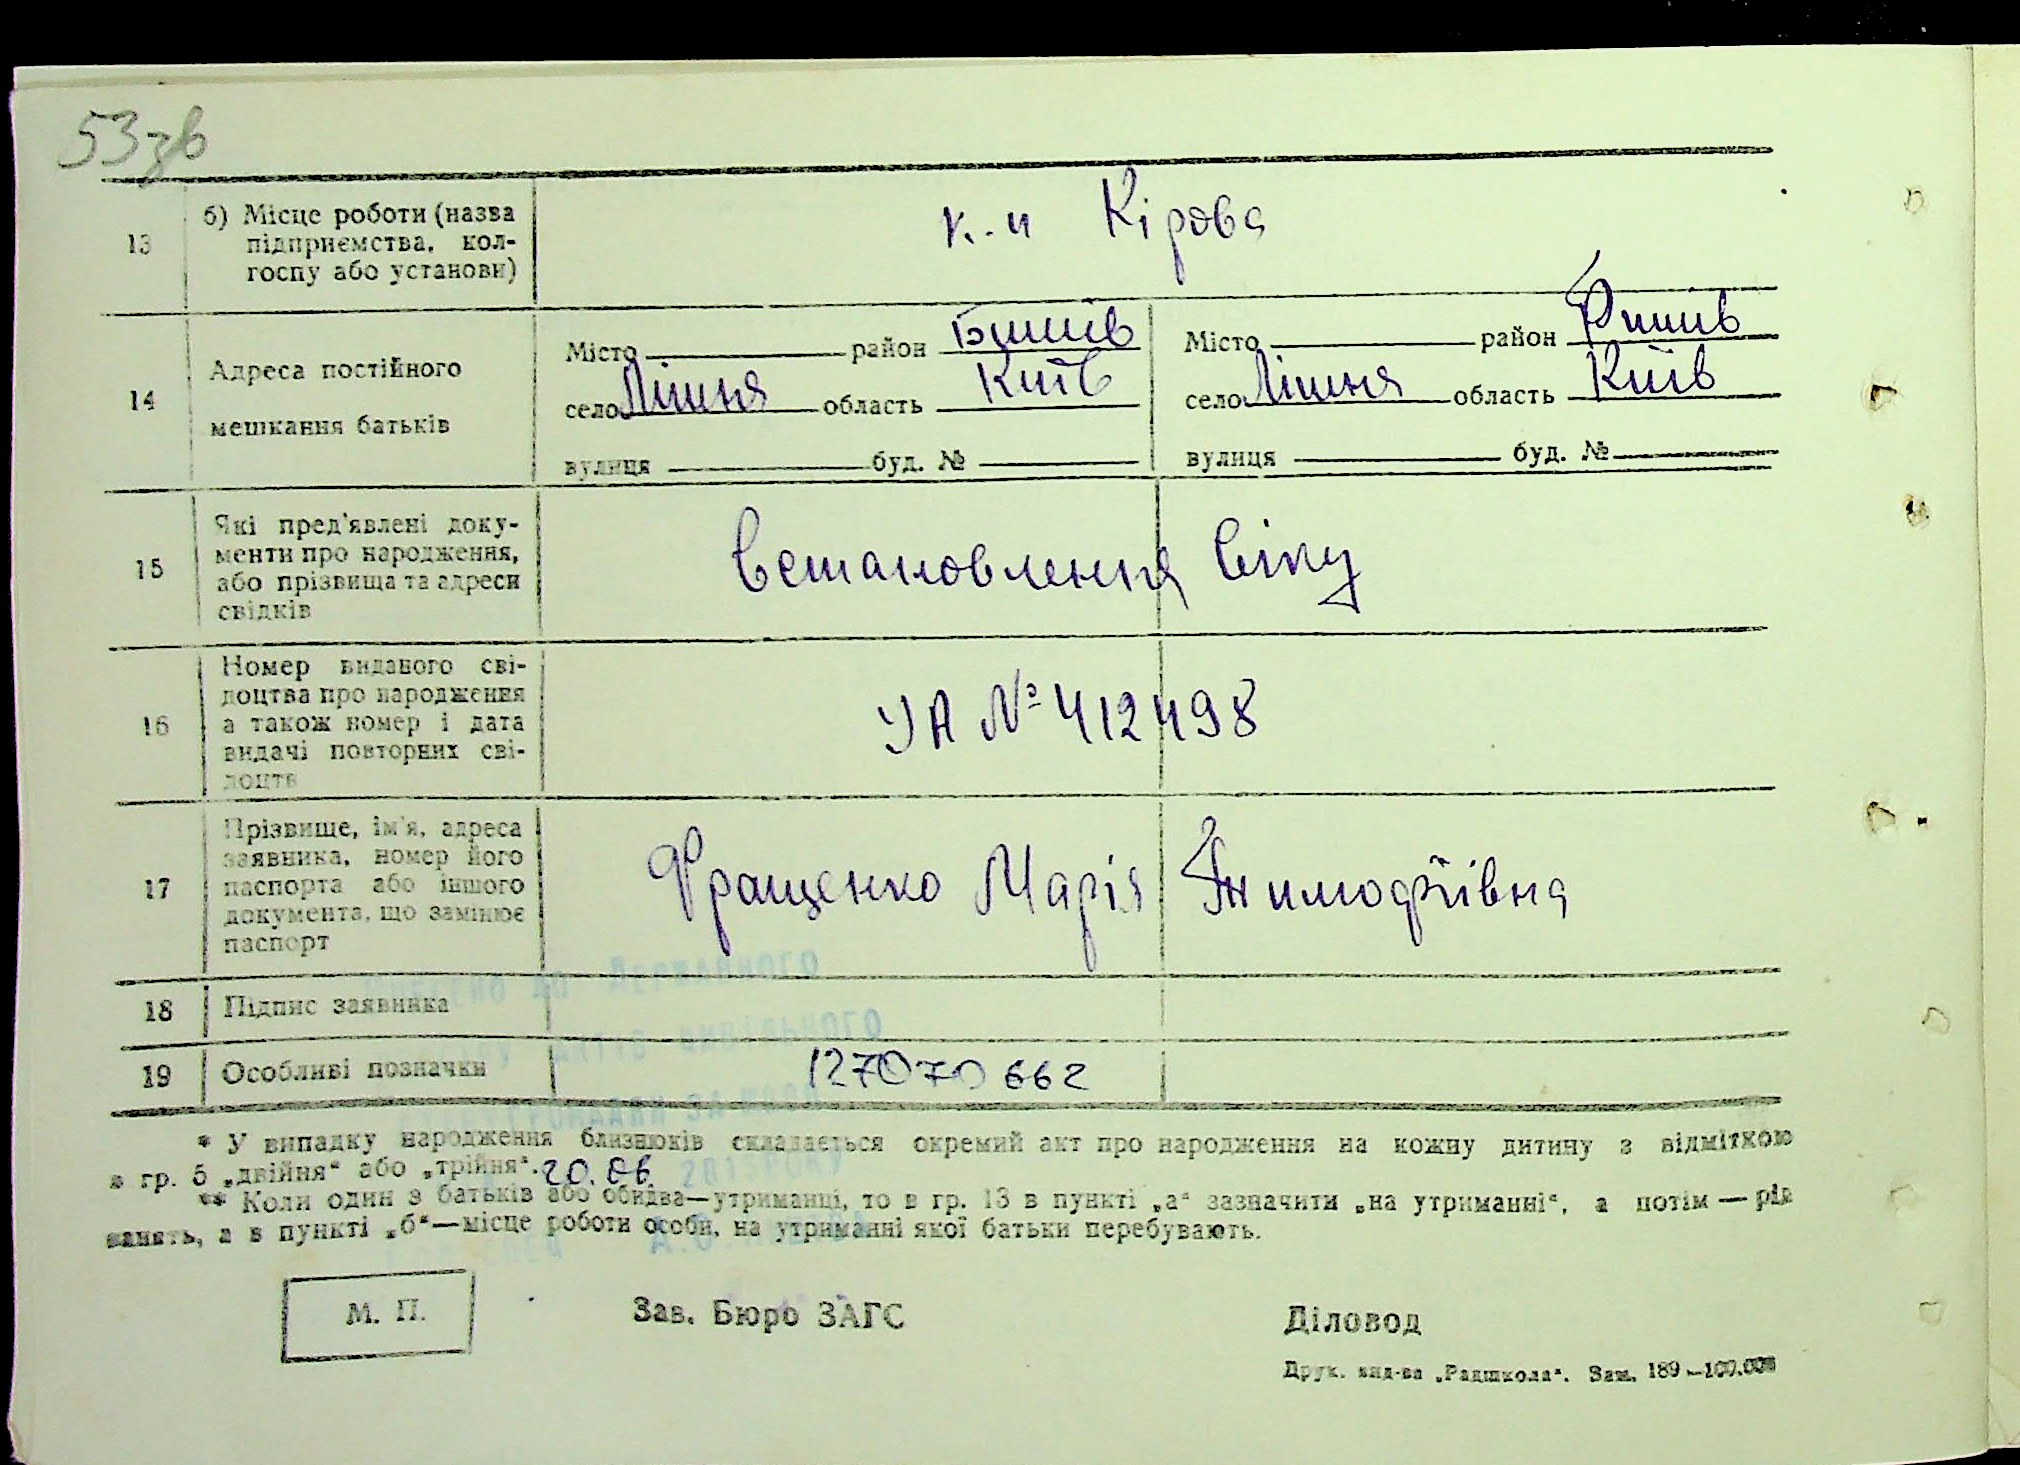 53зв
13
б) Місце роботи (назва
підприємства, кол-
госпу або установи)
к-п Кірова
14
Адреса постійного
мешкання батьків
Місто район Бишів
село Лішня область Київ
вулиця буд. №
Місто район Бишів
село Лішня область Київ
вулиця буд. №
15
Які пред'явлені доку-
менти про народження,
або прізвища та адреси
свідків
Встановлення віку
16
Номер виданого сві-
доцтва про народження
а також номер і дата
видачі повторних сві-
доцтв
УА № 412498
17
Прізвище, ім'я, адреса
заявника, номер його
паспорта або іншого
документа, що замінює
паспорт
Фращенко Марія Тимофіївна
18
Підпис заявника
19
Особливі позначки
127070662
* У випадку народження близнюків складається окремий акт про народження на кожну дитину з відміткою
в гр. 5 „двійня“ або „трійня“. 20.06. 2013 РОКУ
** Коли один з батьків або обидва—утриманці, то в гр. 13 в пункті „а“ зазначити „на утриманні“, а потім — рід
занять, а в пункті „б“—місце роботи особи, на утриманні якої батьки перебувають.
М. П.
Зав. Бюро ЗАГС
Діловод
Друк. вид-ва „Радшкола“. Зам. 189—100.000